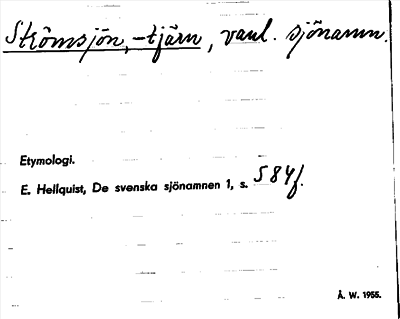 Strömsjön, -tjärn, vanl. sjönamn.
Etymologi.
E. Hellquist, De svenska sjönamnen 1, s. 584f.
Å. W. 1955.